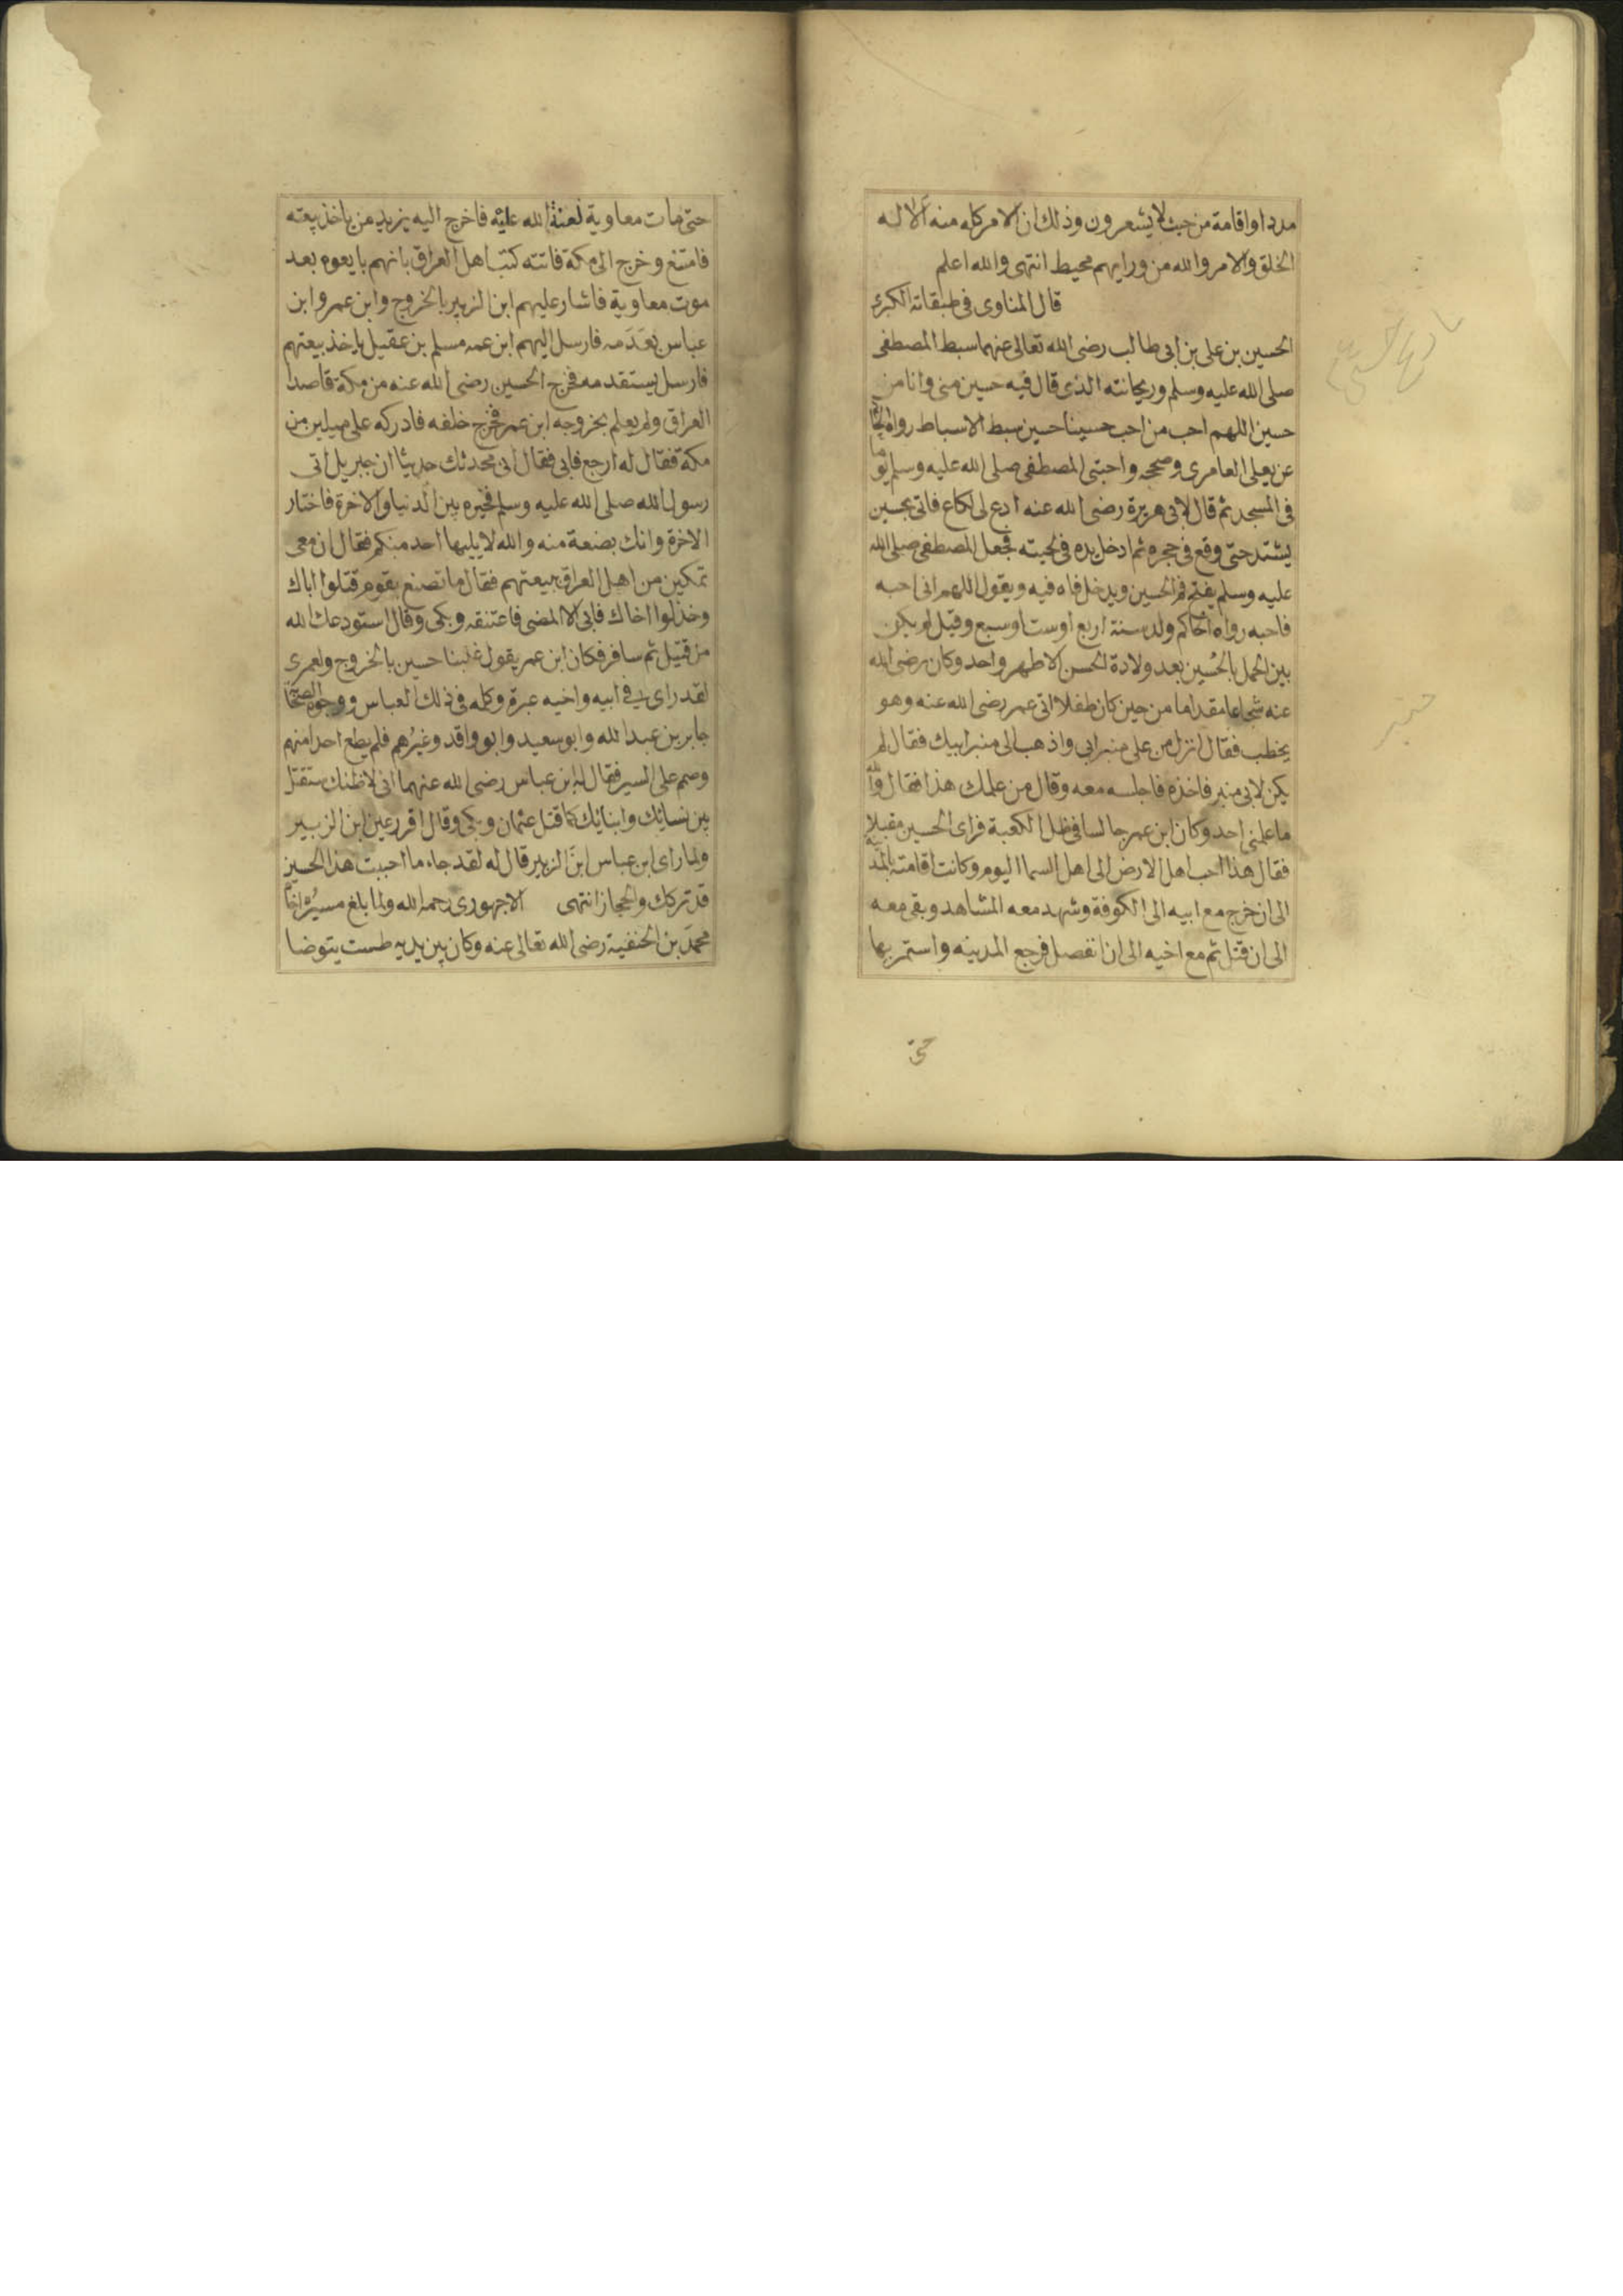 مددا واقامة من حيث لا يشعرون وذلك ان الامر كله منه الا له
الخلق والامر والله من ورايهم محيط انتهى والله اعلم
قال المناوى فى طبقاته الكبرى
الحسين بن على بن ابى طالب رضى الله تعالى عنهما سبط المصطفى
صلى الله عليه وسلم وريحانته الذى قال فيه حسين منى وانا من
حسين اللهم احب من احب حسينا حسين سبط الاسباط رواه
عن يعلى العامرى وصححه واحتبى المصطفى صلى الله عليه وسلم يوما
فى المسجد ثم قال لابى هريرة رضى الله عنه ادع لى لكاع فاتى بحسين
يشتد حتى وقع فى حجره ثم ادخل يده فى لحيته فجعل المصطفى صلى الله
عليه وسلم يفتح فم الحسين ويدخل فاه فيه ويقول اللهم انى احبه
فاحبه رواه الحاكم ولد سنة اربع او ست او سبع وقيل لم يكن
بين الحمل بالحُسين بعد ولادة الحسن الا طهر واحد وكان رضى الله
عنه شجاعا مقداما من حين كان طفلا اتى عمر رضى الله عنه وهو
يخطب فقال انزل من على منبر ابى واذهب الى منبر ابيك فقال لم
يكن لابى منبر فاخذه فاجلسه معه وقال من علمك هذا فقال والله
ما علمنى احد وكان ابن عمر جالسا فى ظل الكعبة فراى الحسين مقبلا
فقال هذا احب اهل الارض الى اهل السما اليوم وكانت اقامته بالمدينة
الى ان خرج مع ابيه الى الكوفة وشهد معه المشاهد وبقى معه
الى ان قتل ثم مع اخيه الى ان انفصل فرجع المدينه واستمر بها
حتى
حتى مات معاوية لعنة الله عليه فاخرج اليه يزيد من ياخذ بيعته
فامتنع وخرج الى مكة فاتته كتب اهل العراق بانهم بايعوه بعد
موت معاوية فاشار عليهم ابن الزبير بالخروج وابن عمر وابن
عباس بعَدَمه فارسل اليهم ابن عمه مسلم بن عقيل ياخذ بيعتهم
فارسل يستقدمه فخرج الحسين رضى الله عنه من مكة قاصدا
العراق ولم يعلم بخروجه ابن عمر فخرج خلفه فادركه على ميلين من
مكة فقال له ارجع فابى فقال انى محدثك حديثا ان جبريل اتى
رسول الله صلى الله عليه وسلم فخيره بين الدنيا والاخرة فاختار
الاخرة وانك بضعة منه والله لا يليها احد منكم فقال ان معى
تمكين من اهل العراق ببيعتهم فقال ما تصنع بقوم قتلوا اباك
وخذلوا اخاك فابى الا المضى فاعتنقه وبكى وقال استودعك الله
من قتيل ثم سافر فكان ابن عمر يقول غلبنا حسين بالخروج ولعمرى
لقد راى فى ابيه واخيه عبرة وكلمه فى ذلك العباس ووجوه الصحابة
جابر بن عبد الله وابو سعيد وابو واقد وغيُرهم فلم يطع احدا منهم
وصمم على السير فقال له ابن عباس رضى الله عنهما انى لاظنك ستقتل
بين نسائك وابنائك كما قتل عثمان وبكى وقال اقر عين ابن الزبير
ولما راى ابن عباس ابنَ الزبير قال له لقد جاء ما احببت هذا الحسين
قد تركك والحجاز انتهى الاجهورى رحمه الله ولما بلغ مسيرُه اخاه
محمدَ بن الحنفية رضى الله تعالى عنه وكان بين يديه طست يتوضا